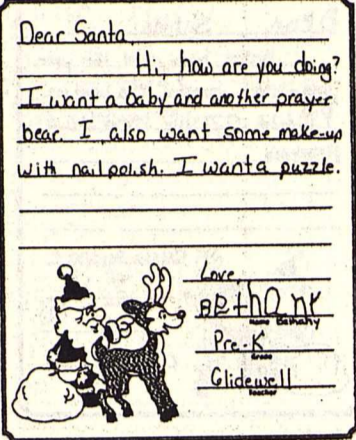 Dear Santa
Hi, how are you doing?
I want a baby and another prayer
bear. I also want some make-up
with nail polish. I want a puzzle.
Love
Bethany
Name Bethany
Pre-K
Grade
Glidewell
Teacher